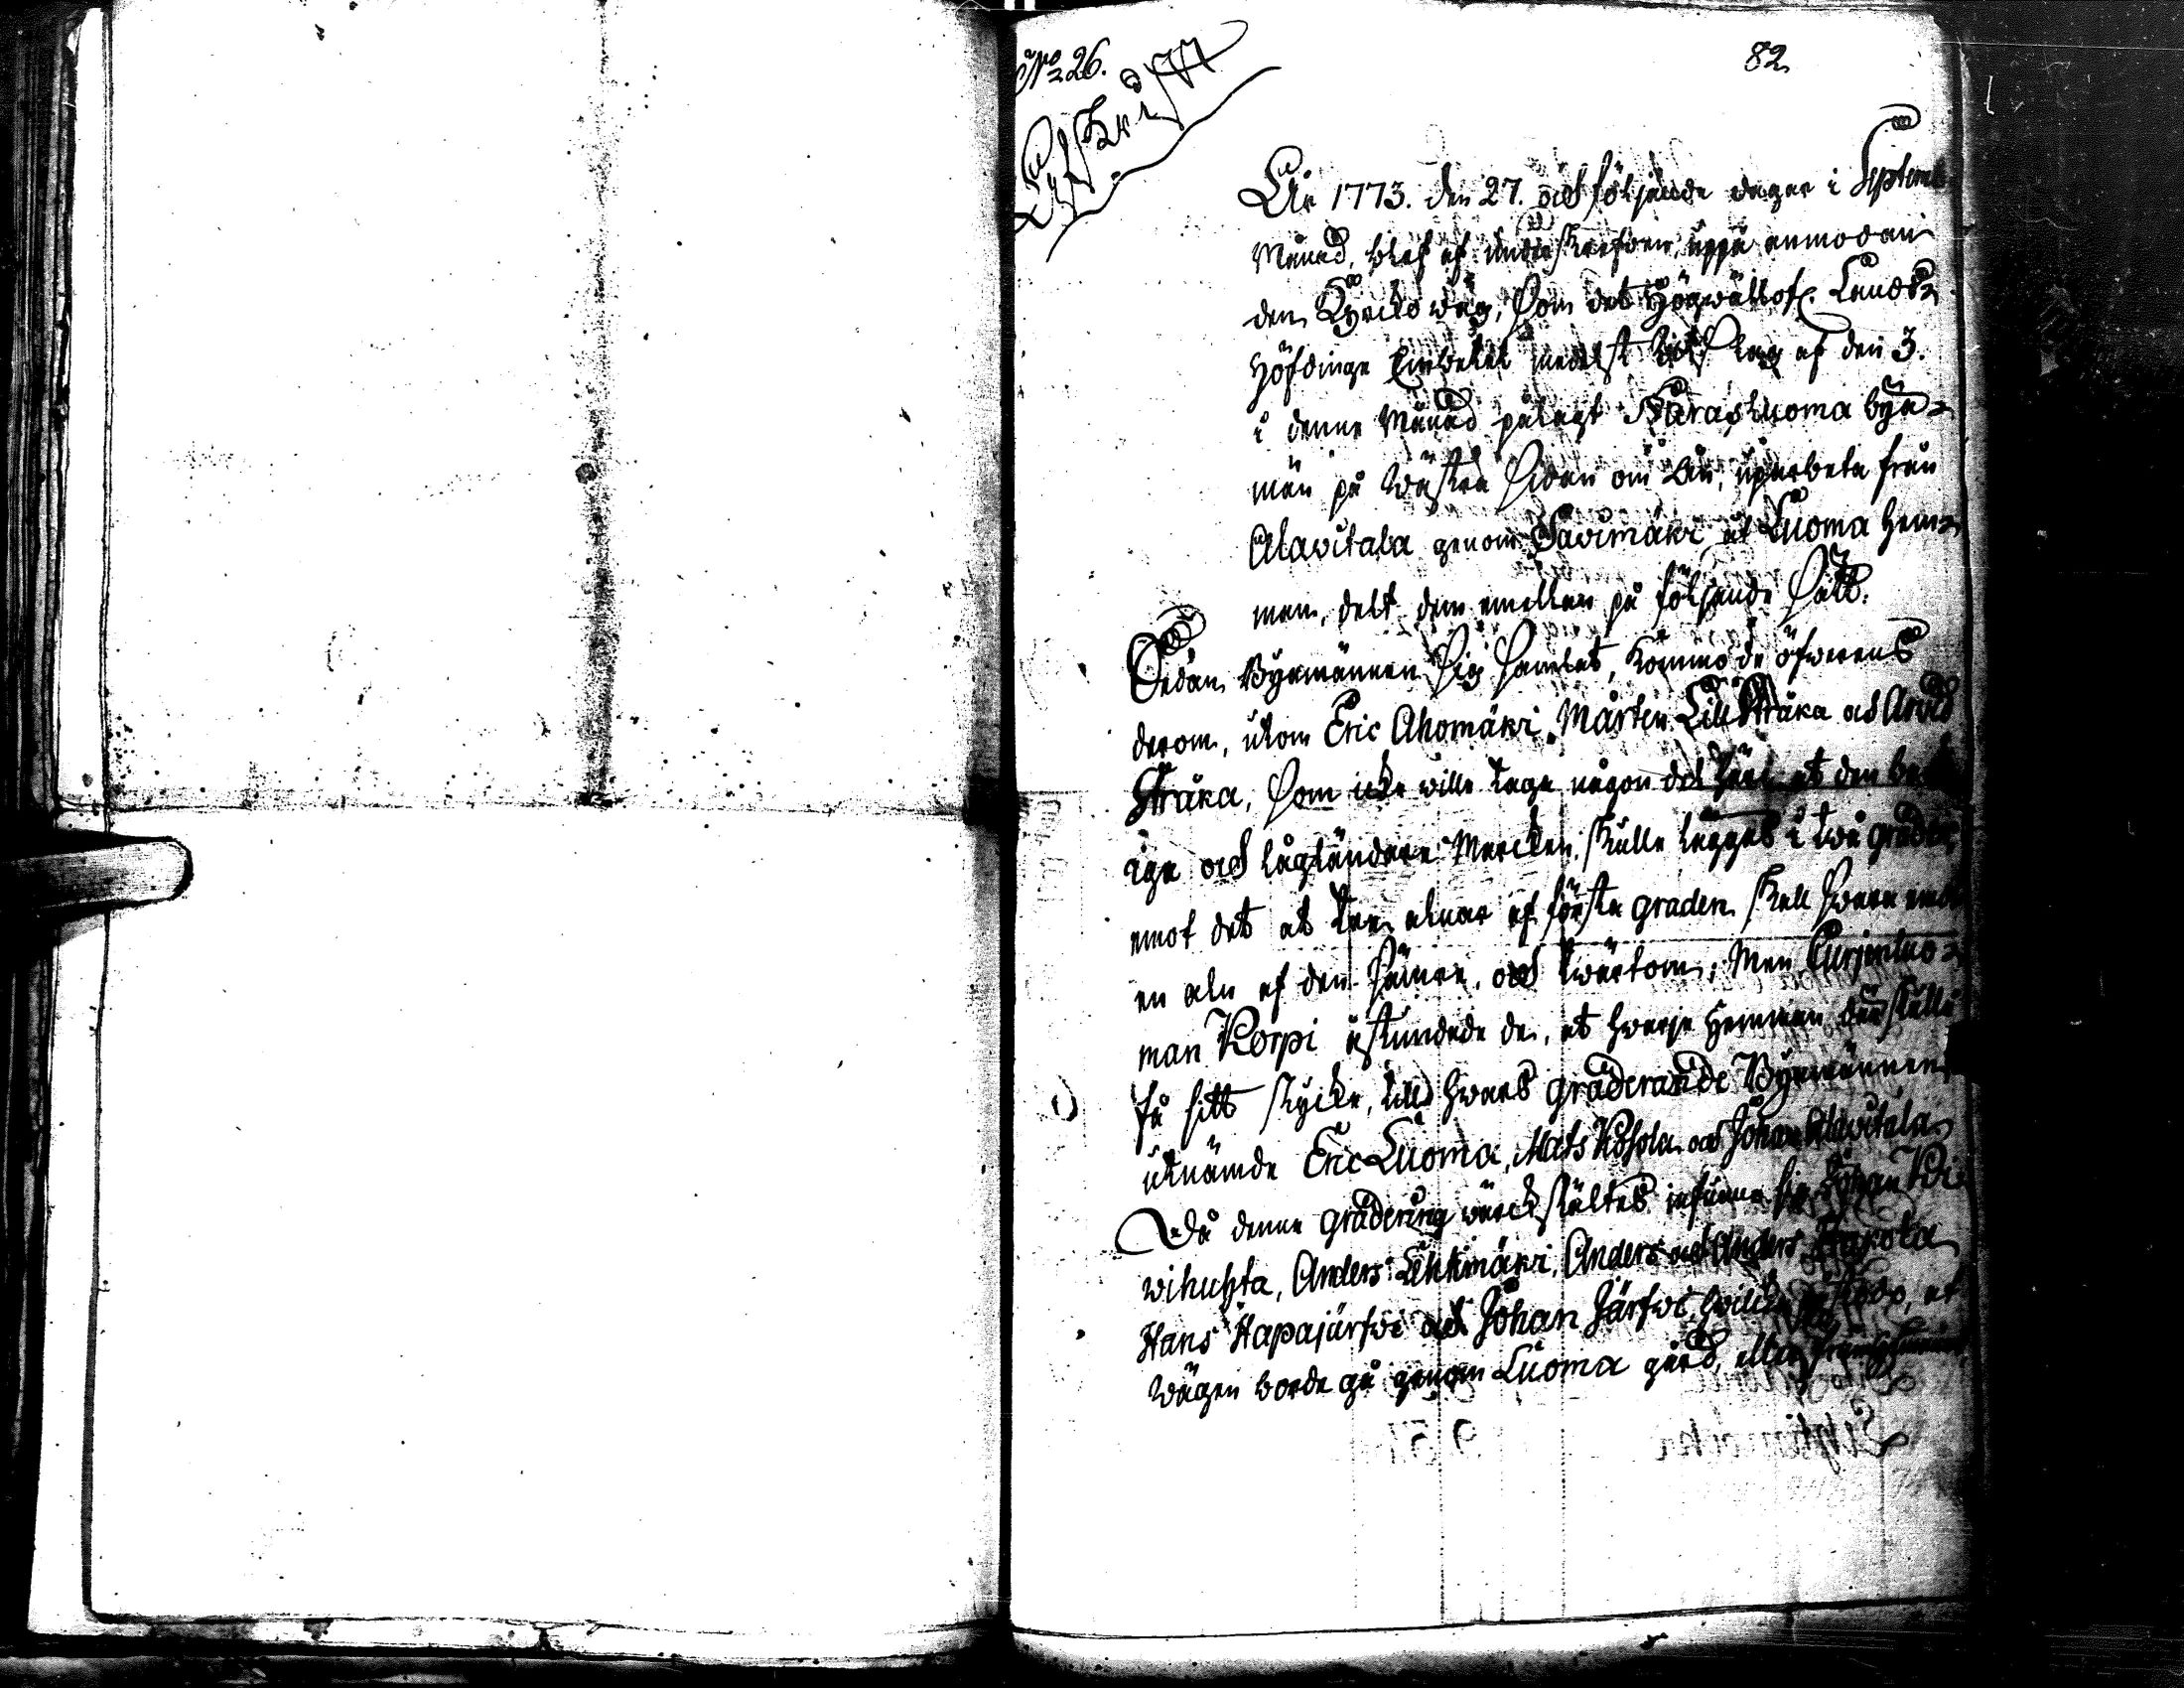 N:o 26.
82
Afskrift
År 1773. den 27. och följande dagar i Septemb:
Månad, blef af underskrefven, uppå anmodan
den Kyrcko wäg, som det Högwällofl. Lands-
Höfdinge Embetet medelst utslag af den 3.
i denne Månad pålagt Kårasluoma bya-
män på wästra sidan om ån, uparbeta från
Alavitala genom Savimäki åt Luoma hem-
man, delt dem emellan på följande sätt.
Sedan Byamännen sig samlat, kommo de öfwerens
derom, utom Eric Ahomäki, Mårten Lill Kråka och Arvid
Kråka, som icke wille taga någon del häri at den
ige och lågländare Marcken skulle läggas i twå grader,
emot det at tre alnar af första graden skall swara emot
en aln af den sämre, och twärtom; Men Curjenluo-
man Korpi åstundade de, at hwarje Hemman der skulle
få sitt stycke, till hwars graderande Byamännen
utnämde Eric Luoma, Mats Kosola och Johan Alavitala
Då denne gradering wärckstältes infunno sig Johan Koi
wihuhta, Anders Lehtimäki, Anders och Anders Harola
Hans Hapajärfwi och Johan Järfwi, hwilcka påstodo, at
wägen borde gå genom Luoma gård, eller